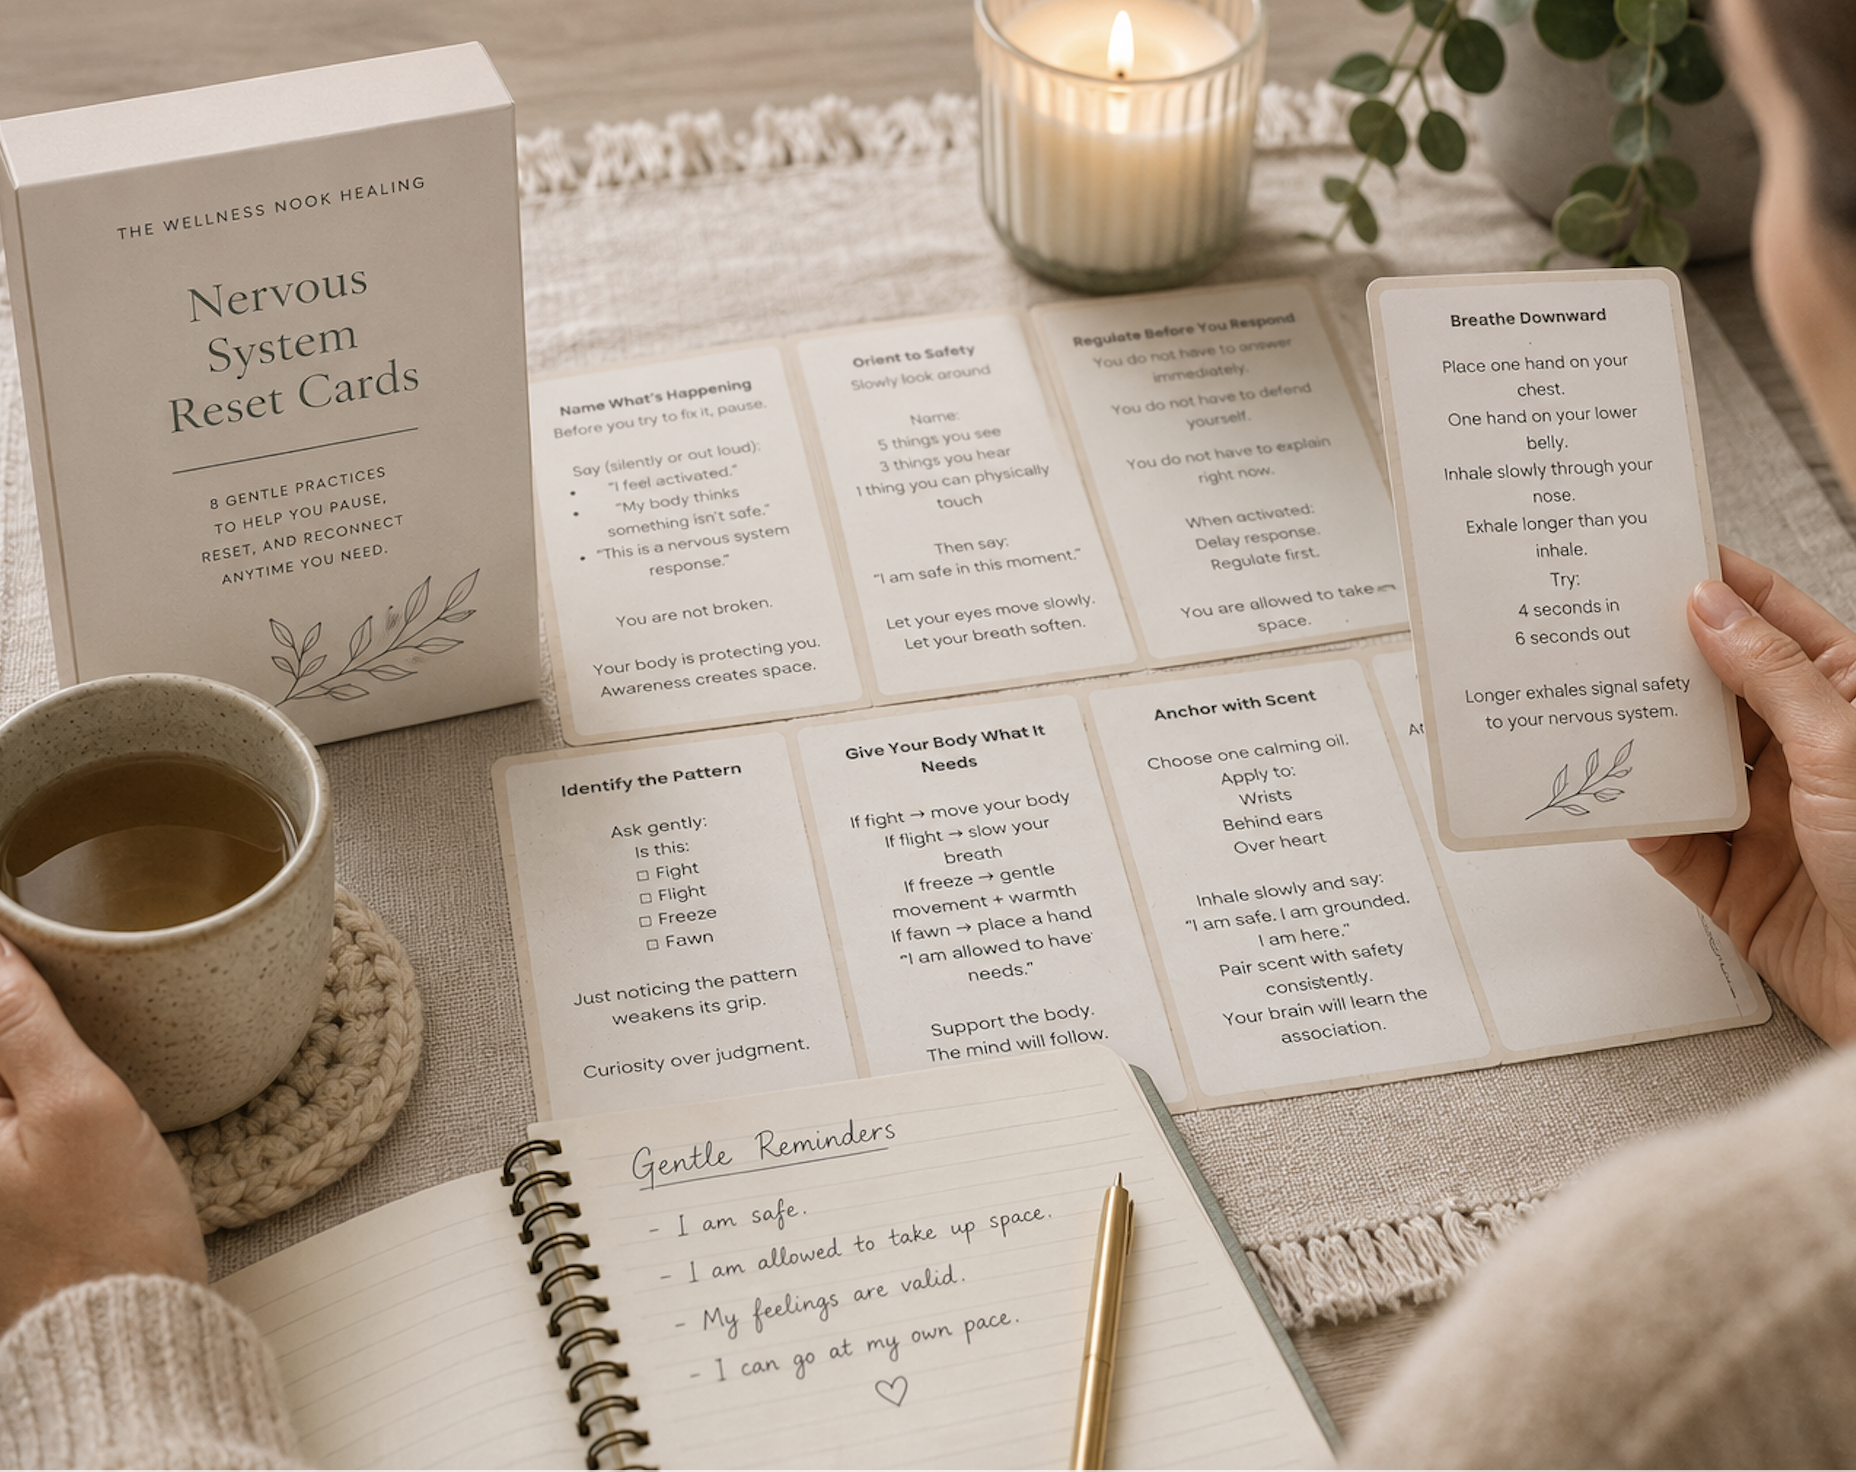 THE WELLNESS NOOK HEALING
Nervous
System
Reset Cards
8 GENTLE PRACTICES
TO HELP YOU PAUSE,
RESET, AND RECONNECT
ANYTIME YOU NEED.
Name What's Happening
Before you try to fix it, pause.
Say (silently or out loud):
• "I feel activated."
• "My body thinks
something isn't safe."
• "This is a nervous system
response."
You are not broken.
Your body is protecting you.
Awareness creates space.
Orient to Safety
Slowly look around
Name:
5 things you see
3 things you hear
1 thing you can physically
touch
Then say:
"I am safe in this moment."
Let your eyes move slowly.
Let your breath soften.
Regulate Before You Respond
You do not have to answer
immediately.
You do not have to defend
yourself.
You do not have to explain
right now.
When activated:
Delay response.
Regulate first.
You are allowed to take
space.
Breathe Downward
Place one hand on your
chest.
One hand on your lower
belly.
Inhale slowly through your
nose.
Exhale longer than you
inhale.
Try:
4 seconds in
6 seconds out
Longer exhales signal safety
to your nervous system.
Identify the Pattern
Ask gently:
Is this:
☐ Fight
☐ Flight
☐ Freeze
☐ Fawn
Just noticing the pattern
weakens its grip.
Curiosity over judgment.
Give Your Body What It
Needs
If fight → move your body
If flight → slow your
breath
If freeze → gentle
movement + warmth
If fawn → place a hand
"I am allowed to have
needs."
Support the body.
The mind will follow.
Anchor with Scent
Choose one calming oil.
Apply to:
Wrists
Behind ears
Over heart
Inhale slowly and say:
"I am safe. I am grounded.
I am here."
Pair scent with safety
consistently.
Your brain will learn the
association.
Gentle Reminders
- I am safe.
- I am allowed to take up space.
- My feelings are valid.
- I can go at my own pace.